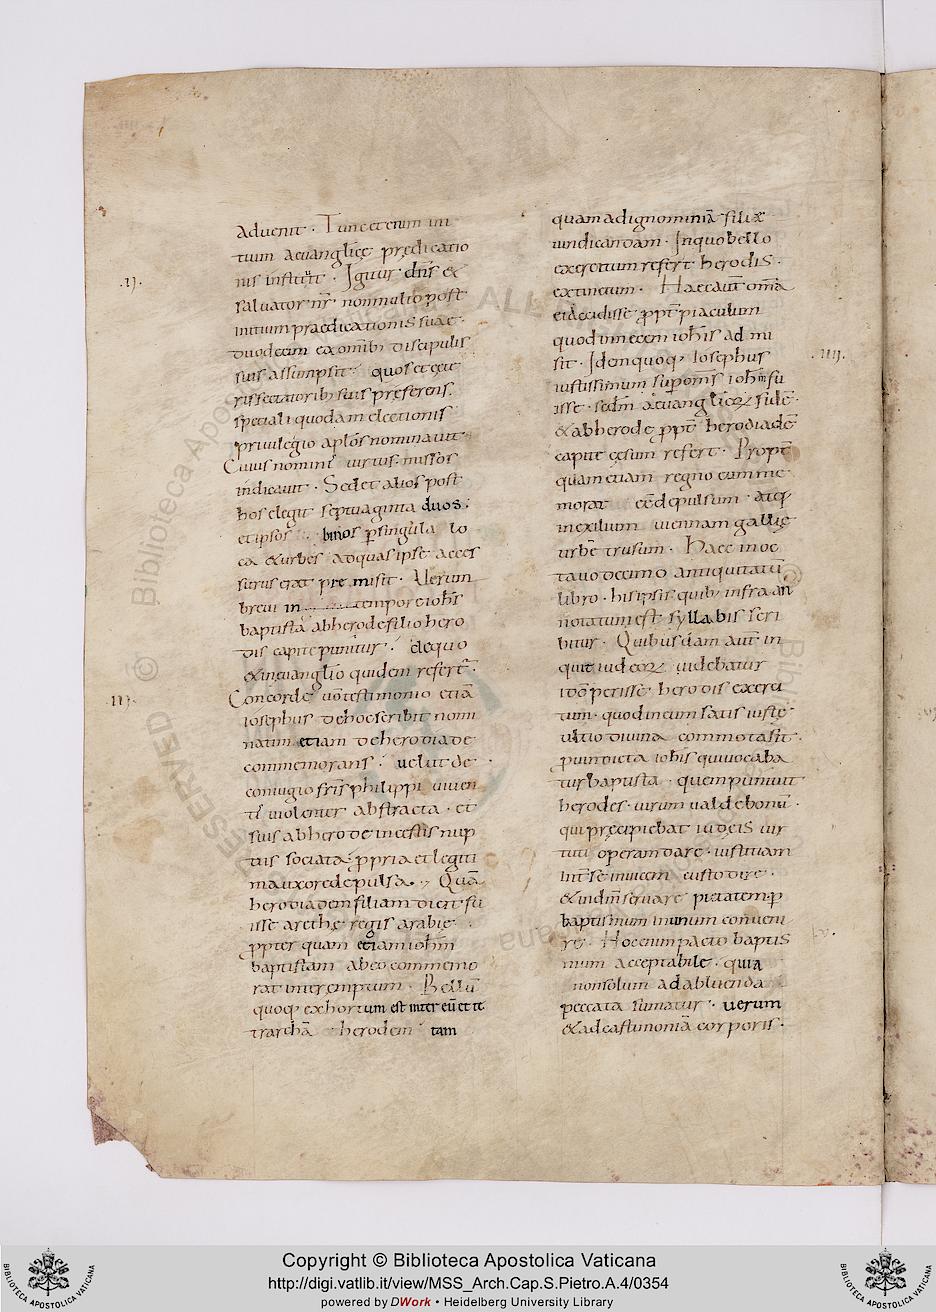 advenit · Tunc etenim ini
tium aeuanglicę predicatio
nis instituit · Igitur dn̅s &
.ıȷ.
saluator nr̅ · non multo post
initium praedicationis suae ·
duodecim ex omnib; discipulis
suis assumpsit · quos et cete
ris sectatorib; suis pręferens
speciali quodam electionis
priuilegio apl̅os nominauit
Cuius nominis uirtus missos
indicauit · Sed et alios post
hos elegit septuaginta duos ·
et ipsos · binos ꝑ singula lo
ca & urbes ad quas ipse acces
surus erat premisit · Uerum
breui in tempore ioh̅s
baptista ab herode filio hero
dis capite punitur · de quo
& in euanglio quidem refert̅ ·
.ııȷ.
Concorde uo̅ testimonio etiā
iosephus de hoc scribit nomi
natim etiam de herodiade
commemorans · uelut de
coniugio fr̅is philippi uiuen
tis uiolenter abstracta · et
suis ab herode incestis nup
tiis sociata · ꝓpria et legiti
ma uxore depulsa · Quā
herodiadem filiam dicit fu
isse arethę regis arabię ·
ꝓpter quam etiam ioh̅m
baptistam ab eo commemo
rat interemptum · Bellū
quoq; exhortum est inter eū et te
trarchā herodem tam
quam ad ignominiā filiæ
uindicandam · In quo bello
exercitum refert herodis ·
extinctum · Haec aut̅ om̅a
ei accidisse ꝓpt̅ piaculum
quod in necem ioh̅is ad mi
sit · Idem quoq; Iosephus
.ıııȷ.
iustissimum sup om̅s ioh̅m fu
isse · sed̅m aeuanglicę fidē ·
& ab herode ꝓpt̅ herodiadē
capite cęsum refert · Propt̅
quam etiam regno eum me
morat eē depulsum · atq;
in exilium uiennam gallię
urbē trusum · Haec in oc
tauo decimo antiquitatū
libro · his ipsis quib; infra an
notatum est syllabis scri
bitur · Quibusdam aut̅ in
quit iudeoꝝ uidebatur
ido̅ perisse herodis exerci
tum · quod in eum satis iuste
ultio diuina commota sit ·
ꝓ uindicta ioh̅is qui uocaba
tur baptista · quem puniuit
herodes · uirum ualde bonū ·
qui pręcipiebat iudęis uir
tuti operam dare · iustitiam
int̅ se inuicem custodire ·
& in dm̅ seruare pietatem · ꝑ
baptismum in unum conueni
re · Hoc enim pacto baptis
mum acceptabile · quia
non solum ad abluenda
peccata sumatur · uerum
& ad castimoniā corporis ·
Copyright © Biblioteca Apostolica Vaticana
http://digi.vatlib.it/view/MSS_Arch.Cap.S.Pietro.A.4/0354
powered by DWork • Heidelberg University Library